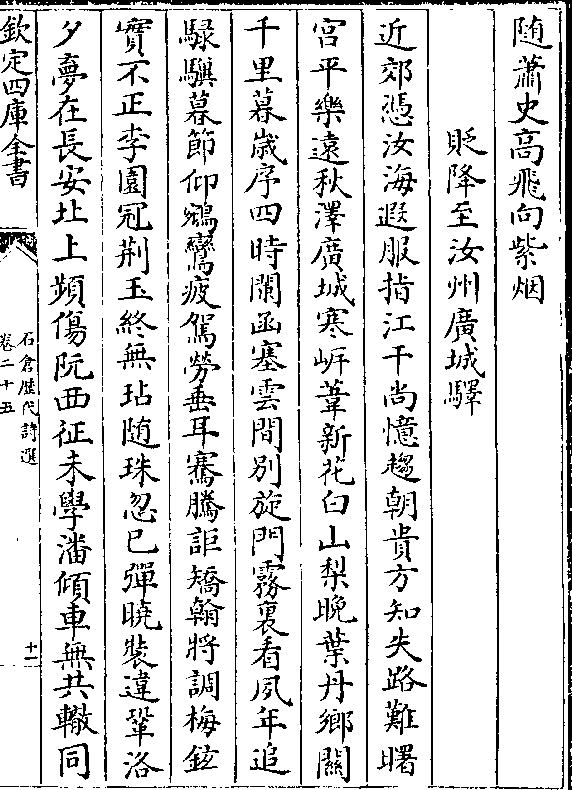 随蕭史高飛向紫烟
貶降至汝州廣城驛
近郊憑汝海遐服指江干尚憶趨朝貴方知失路難曙
宫平樂遠秋澤廣城寒岸葦新花白山梨晚葉丹鄉關
千里暮歲序四時闌函塞雲間别旋門霧裏看夙年追
騄驥暮節仰鵷鸞疲駕勞垂耳騫騰詎矯翰將調梅鉉
實不正李園冠荆玉終無玷随珠忽已彈曉裝違鞏洛
夕夢在長安圵上頻傷阮西征未學潘傾車無共轍同
欽定四庫全書
石倉歴代詩選
卷二十五
十二